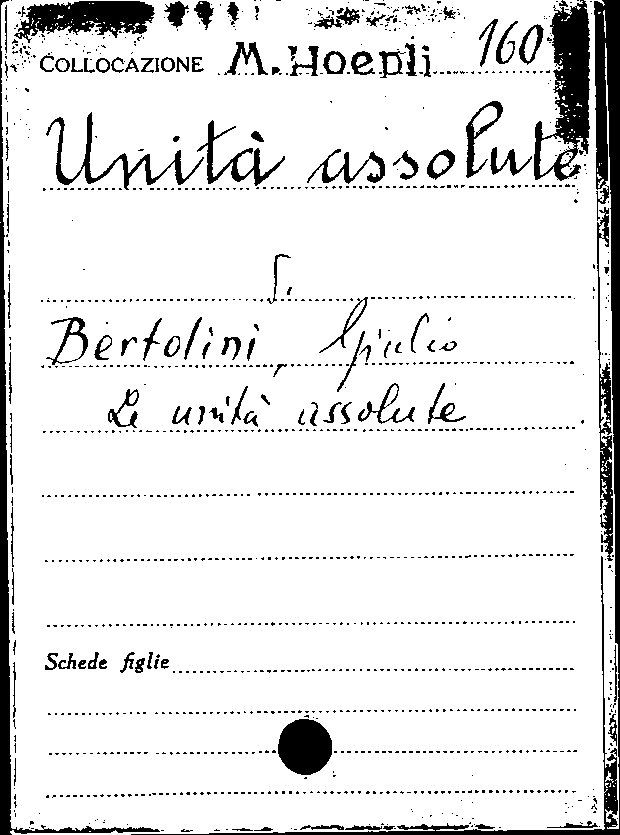 COLLOCAZIONE M. Hoepli 160
Unità assolute
S.
Bertolini, Giulio
Le unità assolute
Schede figlie